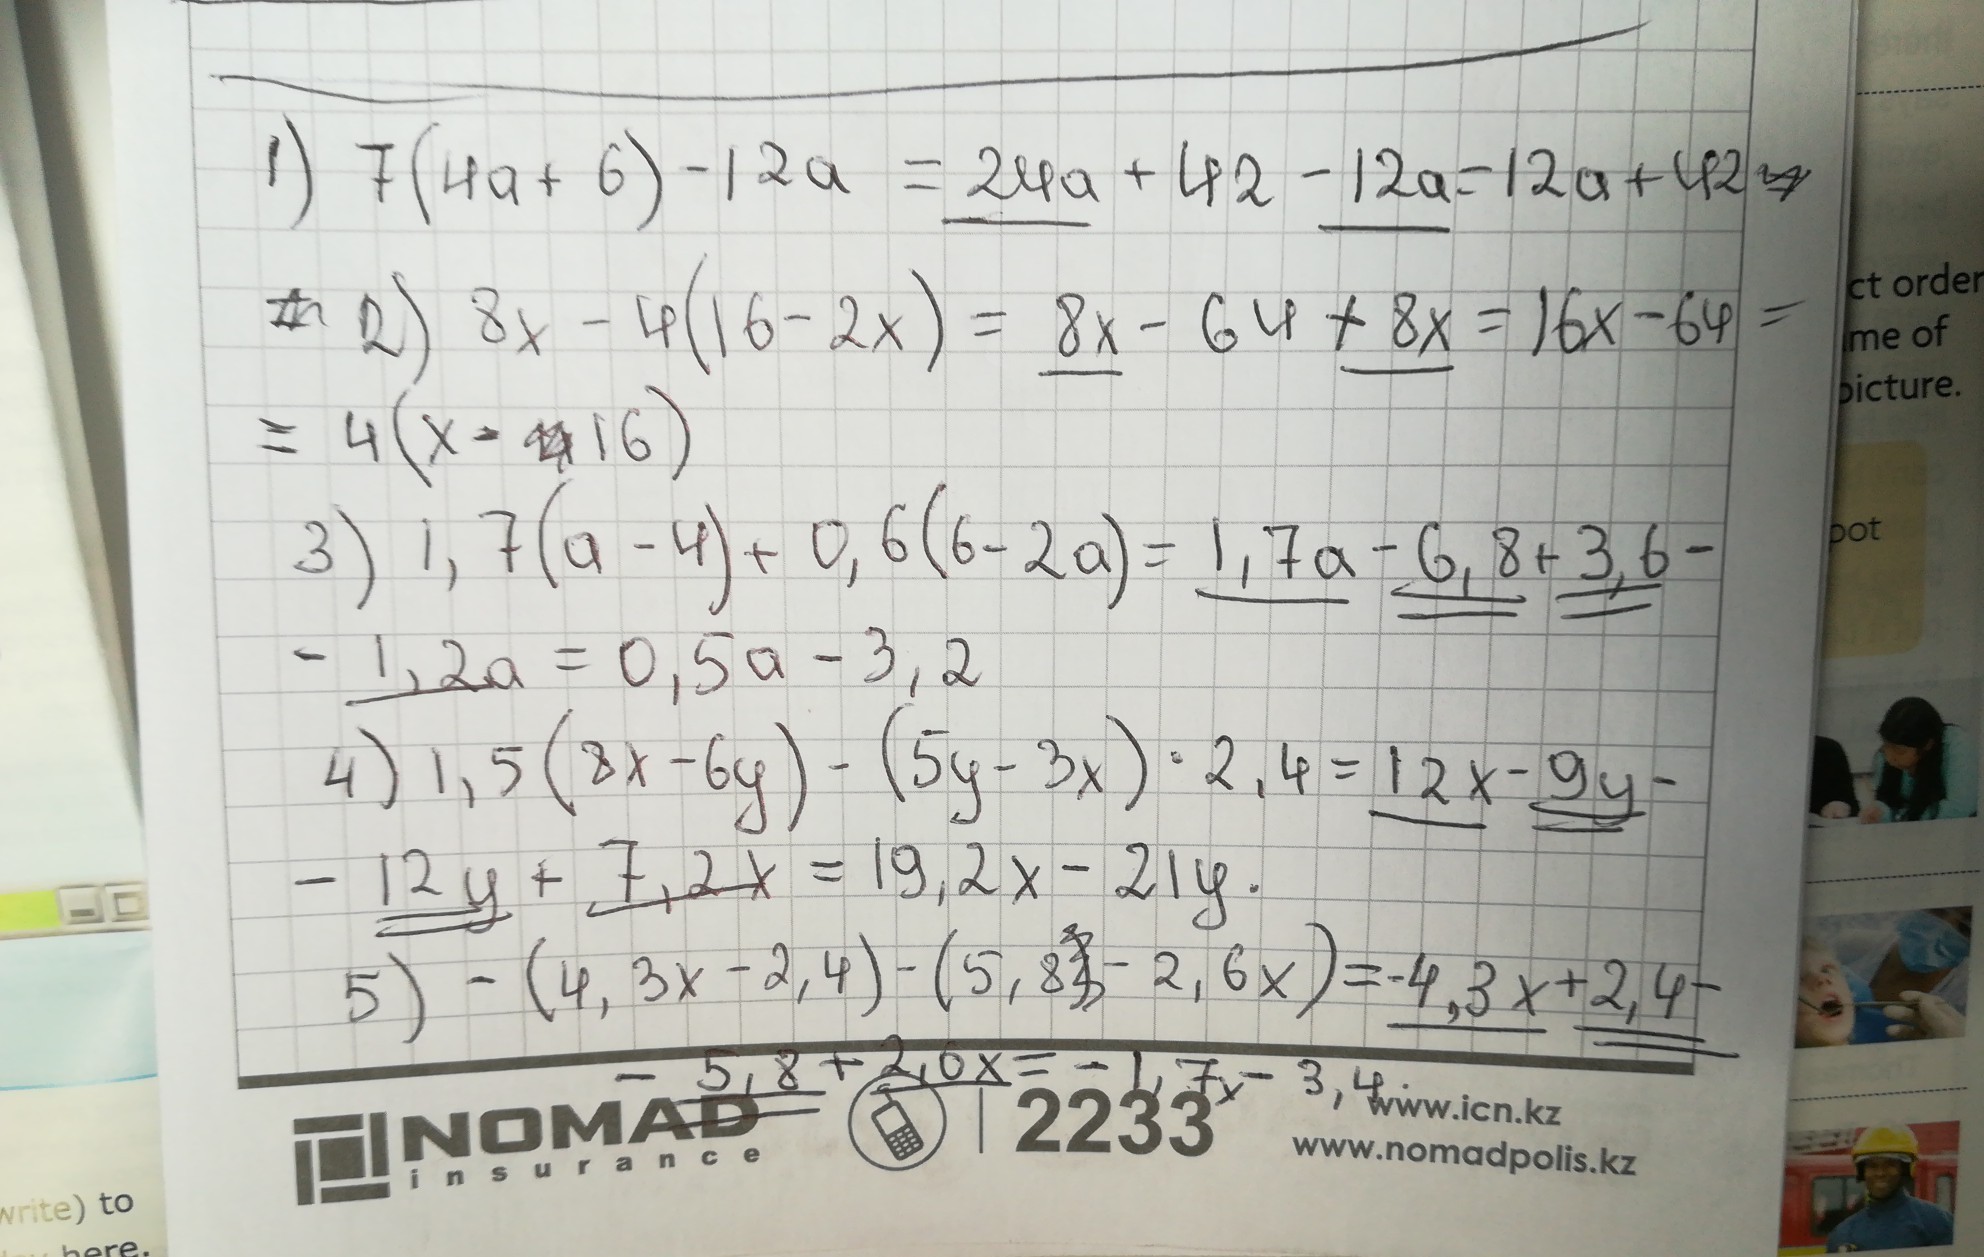 1) 7(4a+6)-12a = 24a+42-12a=12a+42
2) 8x-4(16-2x) = 8x-64+8x=16x-64=
= 4(x-16)
3) 1,7(a-4)+0,6(6-2a)=1,7a-6,8+3,6-
-1,2a=0,5a-3,2
4) 1,5(8x-6y)-(5y-3x)·2,4=12x-9y-
-12y+7,2x=19,2x-21y.
5) -(4,3x-2,4)-(5,8-2,6x)=-4,3x+2,4-
-5,8+2,6x=-1,7x-3,4
NOMAD
insurance
2233
www.icn.kz
www.nomadpolis.kz
ct order
me of
picture.
pot
write) to
here.